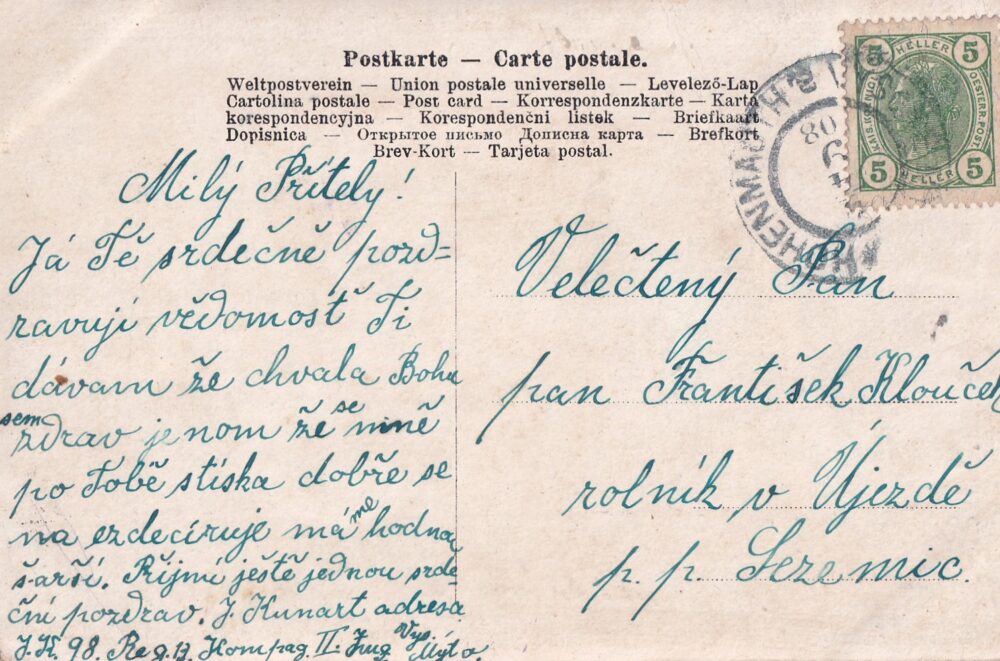 Postkarte — Carte postale.
Weltpostverein — Union postale universelle — Levelező-Lap
Cartolina postale — Post card — Korrespondenzkarte — Karta
korespondencyjna — Korespondenční listek — Briefkaart
Dopisnica — Открытое письмо Дописна карта — Brefkort
Brev-Kort — Tarjeta postal.
5 HELLER 5
5 HELLER 5
HOHENMAUTH
Milý Přítely!
Já Tě srdečně pozd=
ravuji vědomosť Ti
dávam že chvala Bohu
sem zdrav jenom že se mně
po Tobě stíska dobře se
na ezdecíruje máme hodna
šarší. Řijmi ještě jednou srde-
ční pozdrav. J. Kunart adresa
J.K. 98. Reg. Kompag. II. Zug Vys. Mýto.
Velečtený Pan
pan František Klouček
rolník v Újezdě
p. p. Sezemic.